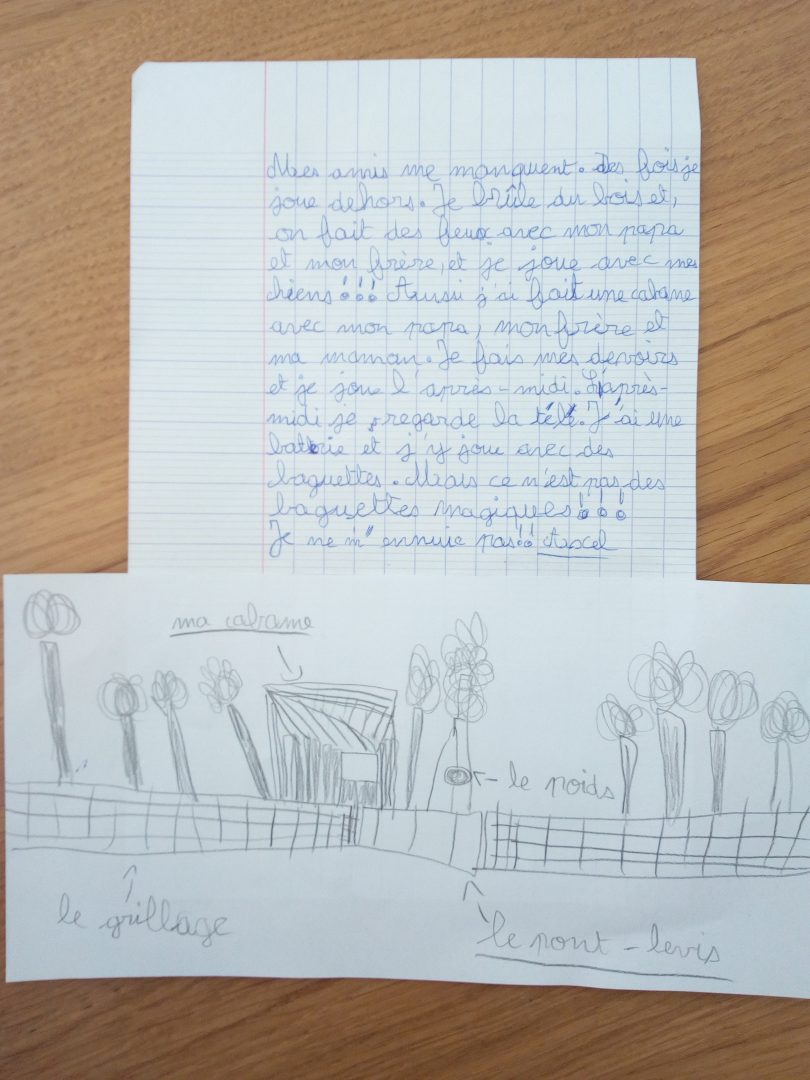 Mes amis me manquent. Des fois je
joue dehors. Je brûle du bois et,
on fait des feux avec mon papa
et mon frère, et je joue avec mes
chiens!!! Aussi j'ai fait une cabane
avec mon papa, mon frère et
ma maman. Je fais mes devoirs
et je joue l'après-midi. L'après-
midi je regarde la télé. J'ai une
batterie et j'y joue avec des
baguettes. Mais ce n'est pas des
baguettes magiques!!!
Je ne m'ennuie pas!! Axel
ma cabane
le poids
le grillage
le pont-levis